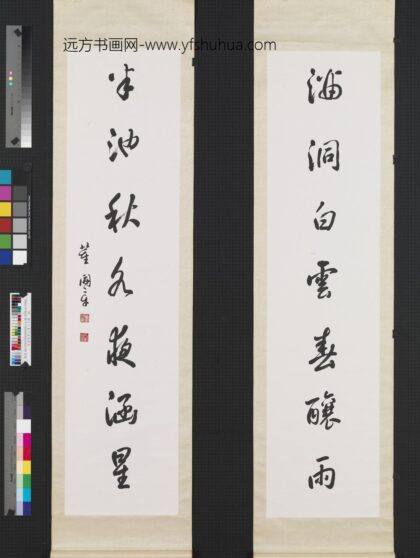 远方书画网-www.yfshuhua.com
滿洞白雲春釀雨
半池秋水夜涵星
董開章